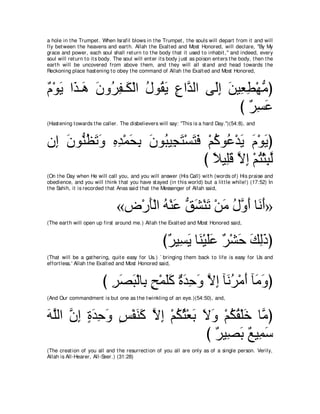 a hole in the Trumpet. When Israfil blows in the Trumpet, the souls will depart from it and will
fly between the heavens and earth. Allah the Exalted and Most Honored, will declare, "By My
grace and power, each soul shall return to the body that it used to inhabit,'' and indeed, every
soul will return to its body. The soul will enter its body just as poison enters the body, then the
earth will be uncovered from above them, and they will all stand and head towards the
Reckoning place hastening to obey the command of Allah the Exalted and Most Honored,
مُّهْطِعِينَ إِلَى الدَّاعِ يَقُولُ الْكَـفِرُونَ هَـذَا يَوْمٌ
عَسِرٌ )
(Hastening towards the caller. The disbelievers will say: "This is a hard Day.'')(54:8), and
(يَوْمَ يَدْعُوكُمْ فَتَسْتَجِيبُونَ بِحَمْدِهِ وَتَظُنُّونَ إِن
لَّبِثْتُمْ إِلاَّ قَلِيلاً )
(On the Day when He will call you, and you will answer (His Call) with (words of) His praise and
obedience, and you will think that you have stayed (in this world) but a little while!) (17:52) In
the Sahih, it is recorded that Anas said that the Messenger of Allah said,
«أَنَا أَوَّلُ مَنْ تَنْشَقُّ عَنْهُ الْأَرْضُ»
(The earth will open up first around me.) Allah the Exalted and Most Honored said,
(ذَلِكَ حَشْرٌ عَلَيْنَا يَسِيرٌ)
(That will be a gathering, quite easy for Us.) `bringing them back to life is easy for Us and
effortless.' Allah the Exalted and Most Honored said,
(وَمَآ أَمْرُنَآ إِلاَّ وَحِدَةٌ كَلَمْحٍ بِالْبَصَرِ )
(And Our commandment is but one as the twinkling of an eye.)(54:50), and,
(مَّا خَلْقُكُمْ وَلاَ بَعْثُكُمْ إِلاَّ كَنَفْسٍ وَحِدَةٍ إِنَّ اللَّهَ
سَمِيعٌ بَصِيرٌ )
(The creation of you all and the resurrection of you all are only as of a single person. Verily,
Allah is All-Hearer, All-Seer.) (31:28)